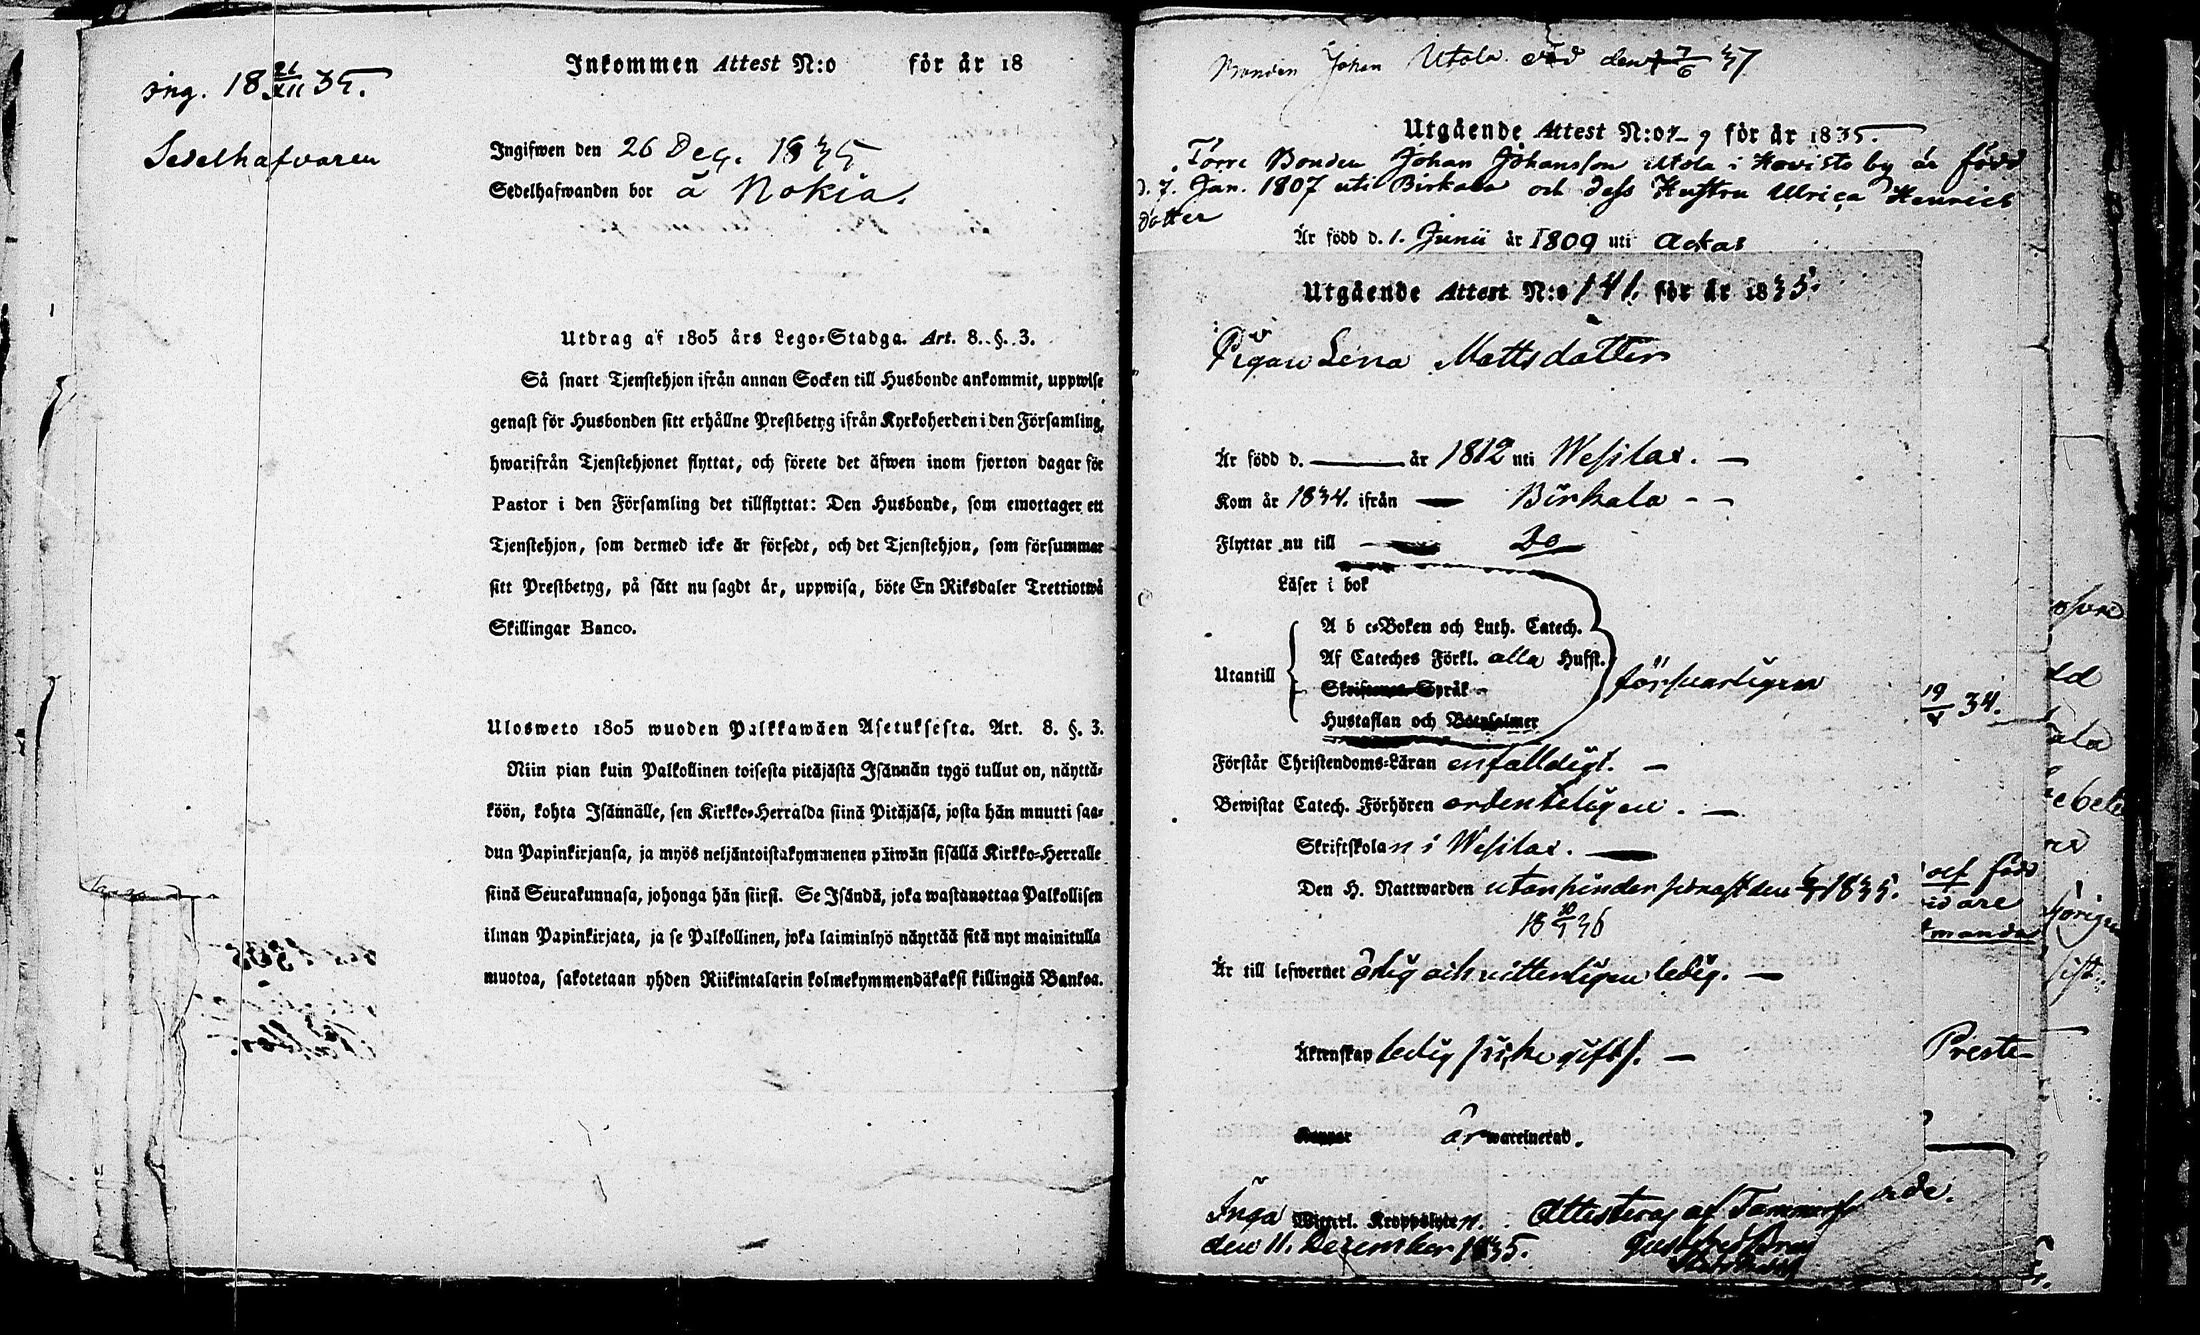 Inkommen Attest N:o för år 18
ing. 18 26/XII 35.
Sedelhafvaren
Ingifwen den 26 Dec. 1835
Sedelhafwanden bor å Nokia.
Utdrag af 1805 års Lego-Stadga. Art. 8. §. 3.
Så snart Tjenstehjon ifrån annan Socken till Husbonde ankommit, uppwise
genast för Husbonden sitt erhållne Prestbetyg ifrån Kyrkoherden i den Församling,
hwarifrån Tjenstehjonet flyttat, och förete det äfwen inom fjorton dagar för
Pastor i den Församling det tillflyttat: Den Husbonde, som emottager ett
Tjenstehjon, som dermed icke är försedt, och det Tjenstehjon, som försummar
sitt Prestbetyg, på sätt nu sagdt är, uppwisa, böte En Riksdaler Trettiotwå
Skillingar Banco.
Ulosweto 1805 wuoden Palkkawäen Asetuksesta. Art. 8. §. 3.
Niin pian kuin Palkollinen toisesta pitäjästä Isännän tygö tullut on, näyttä-
köön, kohta Isännälle, sen Kirkko-Herralda siinä Pitäjäsä, josta hän muutti saa-
dun Papinkirjansa, ja myös neljäntoistakymmenen päiwän sisällä Kirkko-Herralle
siinä Seurakunnasa, johonga hän siirsi. Se Isändä, joka wastanottaa Palkollisen
ilman Papinkirjata, ja se Palkollinen, joka laiminlyö näyttää sitä nyt mainitulla
muotoa, sakotetaan yhden Riikintalarin kolmekymmendäkaksi killingiä Bankoa.
Bonden Johan Utola död den 7/6 37
Utgående Attest N:o 9 för år 1835
Förre Bonden Johan Johansson Utola i Kovisto by är född
d. 7. Jan. 1807 uti Birkala och dess Hustru Ulrica Henrics
dotter
Är född d. 1. Junii år 1809 uti Ackas
Utgående Attest N:o 141. för år 1835.
Pigan Lena Mattsdotter
Är född d. år 1812 uti Wesilax.
Kom år 1834. ifrån Birkala
Flyttar nu till Do
Läser i bok
A b c-Boken och Luth. Catech.
Af Cateches Förkl. alla Hufst.
Utantill Skriftenes Språk försvarligen
Hustaflan och Botpsalmer
19/X 34.
Förstår Christendoms-Läran enfalldigt.
Bewistat Catech. Förhören ordenteligen.
Skriftskolan i Wesilax.
Den H. Nattwarden utan hinder sednast den 1835.
18 36
Är till lefwernet ärlig och vitterligen ledig.
Äktenskap ledig
Preste-
Koppor är waccinerad.
Inga Wigtel. Kroppslyten. Attesteras af Tammerf
den 11. December 1835.